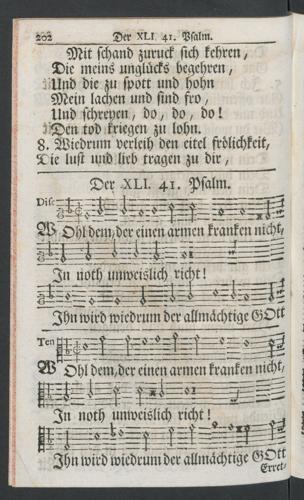 202 Der XLI. 41. Psalm.
Mit schand zuruck sich kehren,
Die meins unglücks begehren,
Und die zu spott und hohn
Mein lachen und sind fro,
Und schreyen, do, do, do!
Den tod kriegen zu lohn.
8. Wiedrum verleih den eitel frölichkeit,
Die lust und lieb tragen zu dir,
Der XLI. 41. Psalm.
Disc
WOhl dem, der einen armen kranken nicht,
In noth unweislich richt!
Ihn wird wiedrum der allmächtige GOtt
Ten
WOhl dem, der einen armen kranken nicht,
In noth unweislich richt!
Ihn wird wiedrum der allmächtige GOtt
Erret-